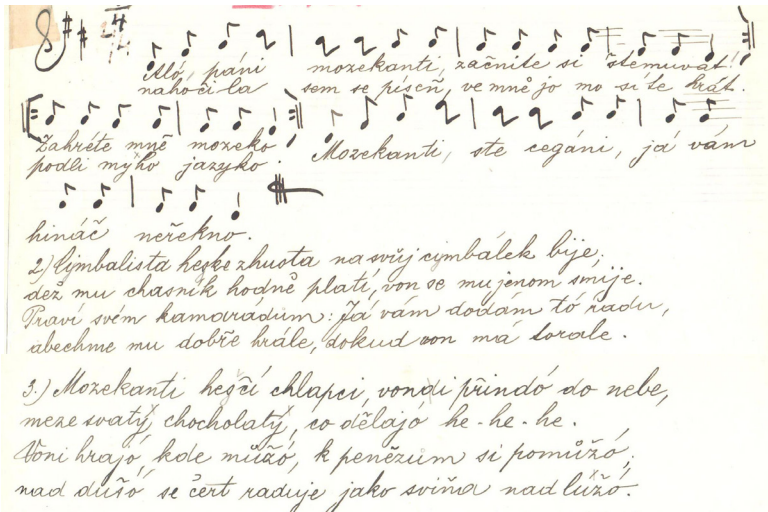 2/4
Aló, páni mozekanti, začnite si štemuvat!
nahoči-la sem se píseň, ve mně jo mo-síte hrát.
Zahréte mně mozeko
podli mýho jazyko. Mozekanti, ste cegáni, já vám
hináč neřekno.
2) Cymbalista heske zhusta na svůj cymbálek bije,
dež mu chasník hodně platí, von se mu jenom směje.
Praví svém kamarádum: Já vám dodám tó radu,
abechme mu dobře hrále, dokud von má torale.
3.) Mozekanti heščí chlapci, vondi přindó do nebe,
meze svatý chocholatý, co dělajó he-he-he.
Voni hrajó, kde můžó, k penězum si pomůžó,
nad dušó se čert raduje jako sviňa nad lúžó.